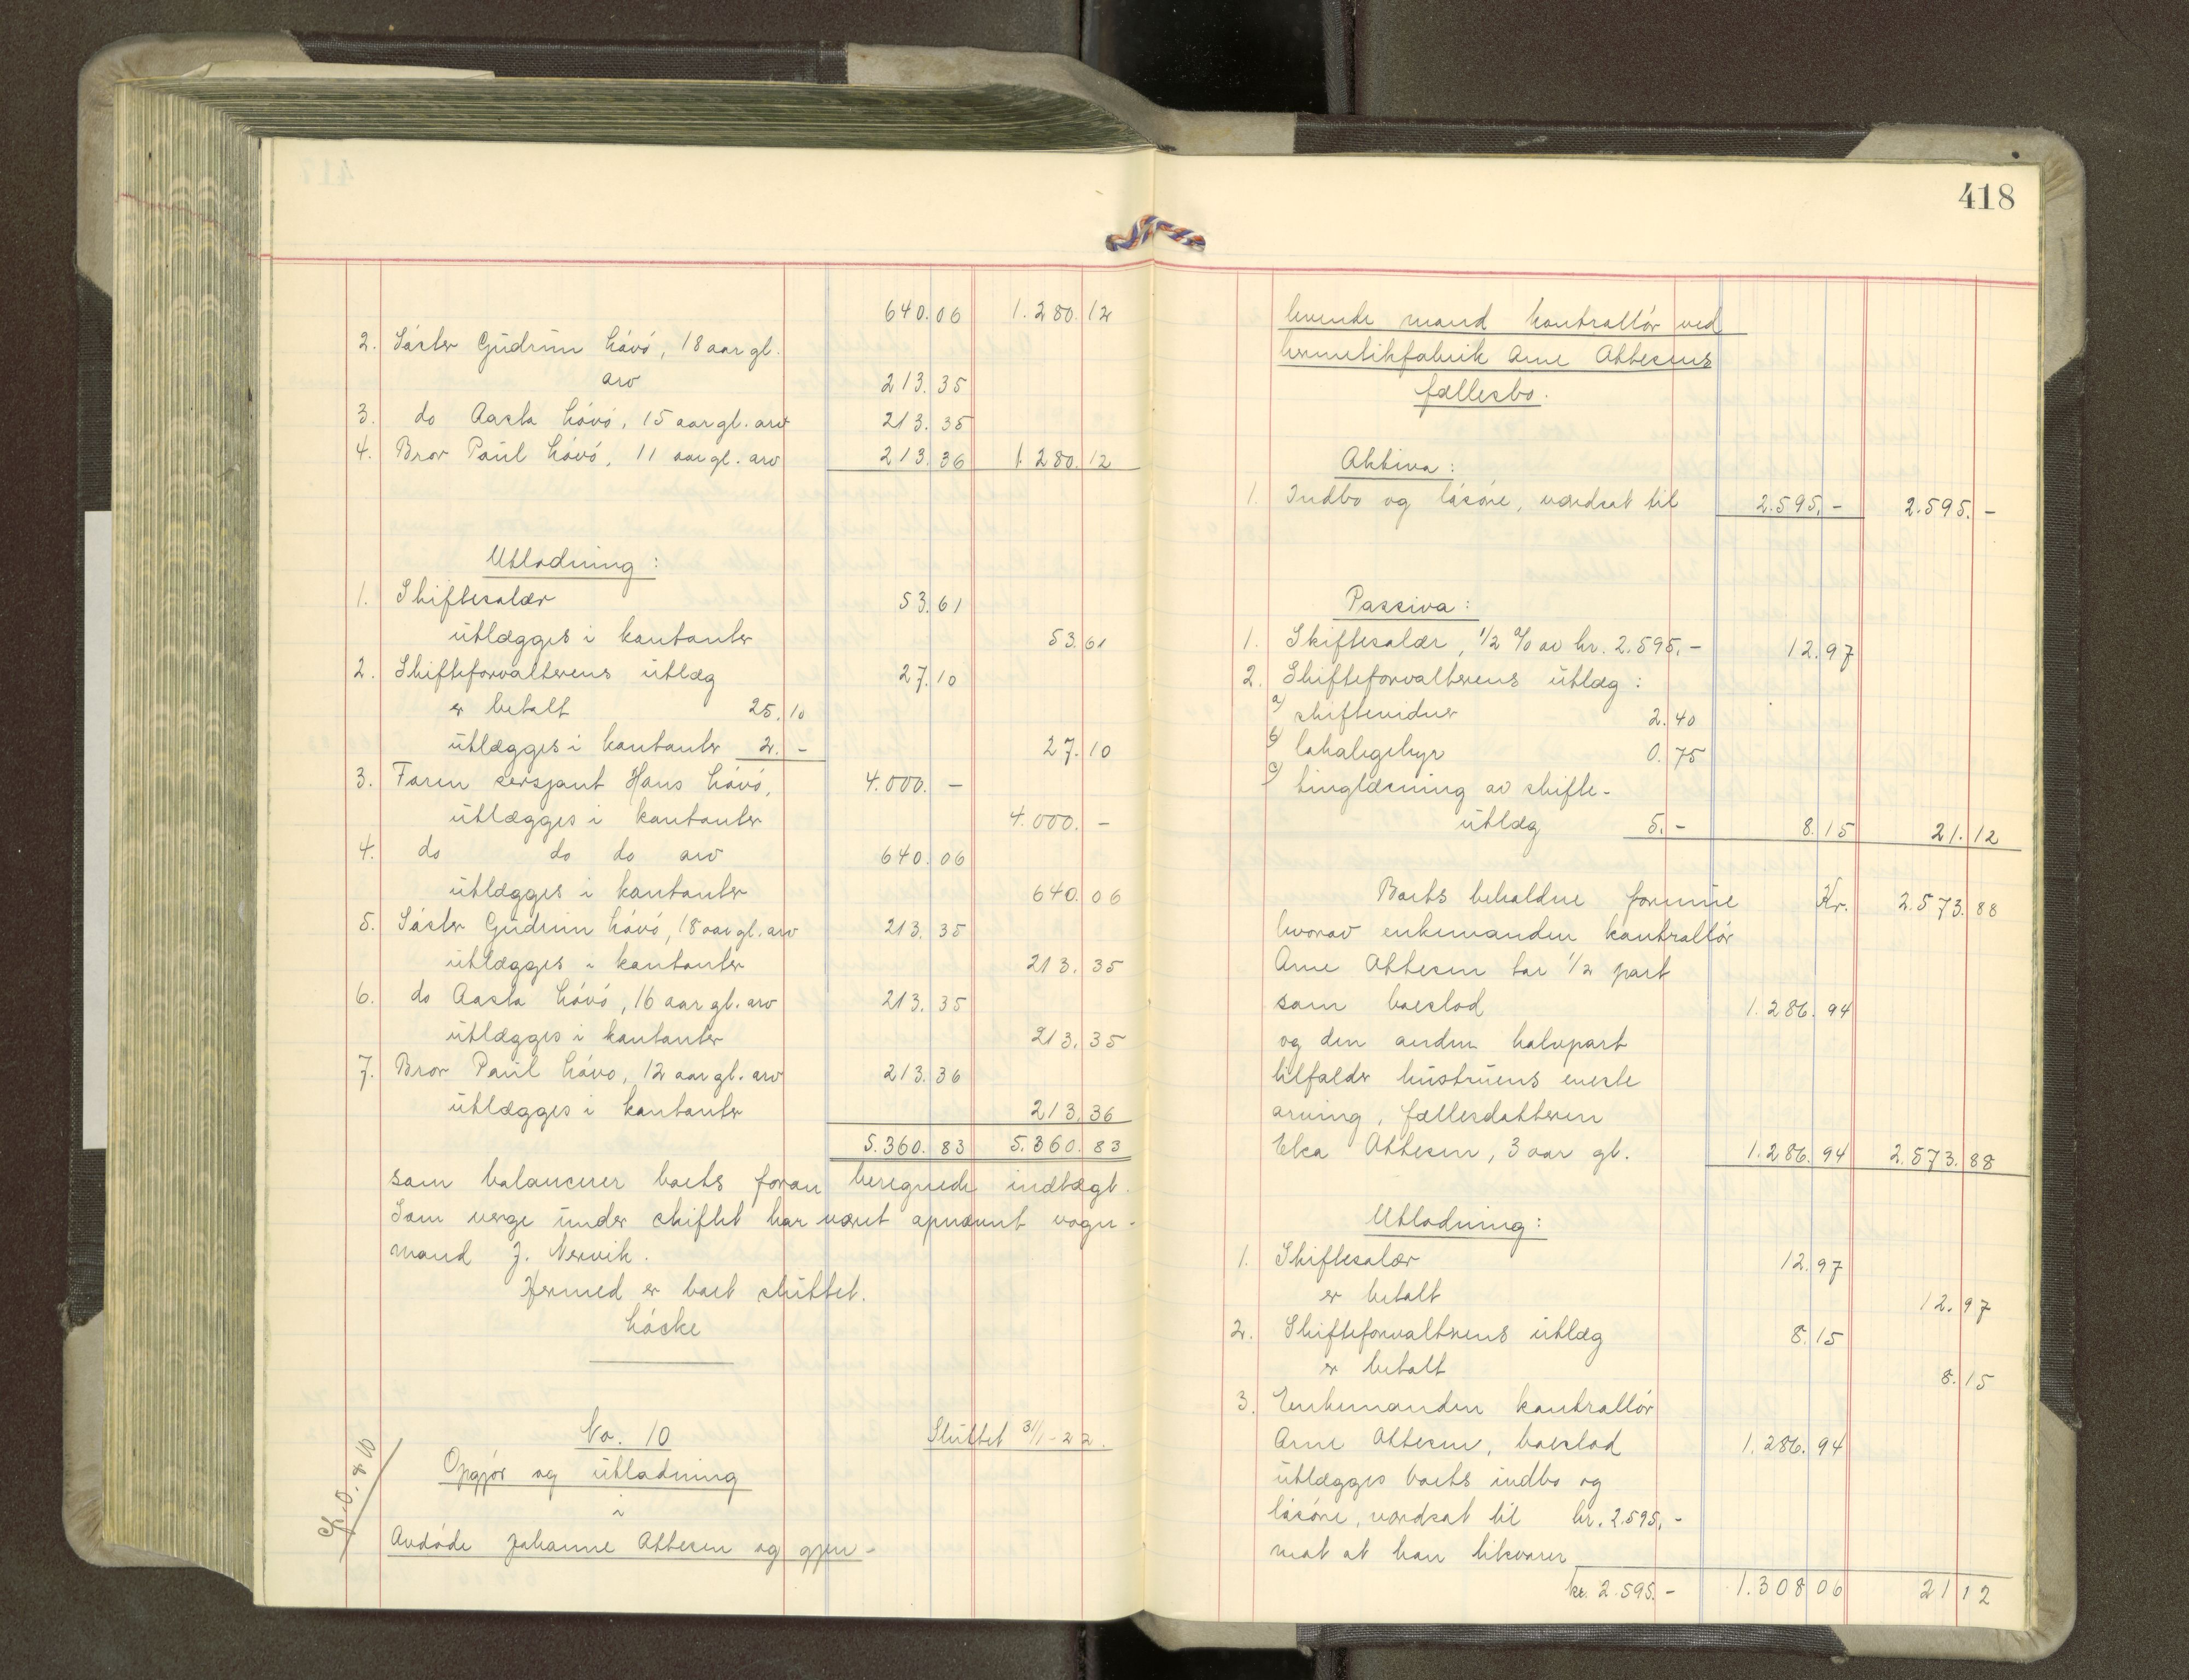 640.06 1.280.12
2. Søster Gudrun Løvø, 18 aar gl.
arv 213.35
3. do Aasta Løvø, 15 aar gl. arv 213.35
4. Bror Paul Løvø, 11 aar gl. arv 213.36 1.280.12
Utlodning:
1. Skiftesalær 53.61
utlægges i kontanter 53.61
2. Skifteforvalterens utlæg 27.10
er betalt 25.10
utlægges i kontanter 2.- 27.10
3. Faren sersjant Hans Løvø, 4.000.-
utlægges i kontanter 4.000.-
4. do do do arv 640.06
utlægges i kontanter 640.06
5. Søster Gudrun Løvø, 18 aar gl. arv 213.35
utlægges i kontanter 213.35
6. do Aasta Løvø, 16 aar gl. arv 213.35
utlægges i kontanter 213.35
7. Bror Paul Løvø, 12 aar gl. arv 213.36
utlægges i kontanter 213.36
5.360.83 5.360.83
som balancerer boets foran beregnede indtægt.
Som verge under skiftet har været opnævnt vogn-
mand J. Nervik.
Hermed er boet sluttet.
Løske
No. 10 Sluttet 31/1-22.
Opgjør og utlodning
i
Avdøde Johanne Ottesen og gjen-
417
418
levende mand kontrollør ved
hermetikfabrik Arne Ottesens
fællesbo.
Aktiva:
1. Indbo og løsøre, værdsat til 2.595.- 2.595.-
Passiva:
1. Skiftesalær, 1/2 % av kr. 2.595.- 12.97
2. Skifteforvalterens utlæg:
a) skiftevidner 2.40
b) lokalegebyr 0.75
c) tinglæsning av skifte-
utlæg 5.- 8.15 21.12
Boets beholdne formue Kr. 2.573.88
hvorav enkemanden kontrollør
Arne Ottesen tar 1/2 part
som boeslod 1.286.94
og den anden halvpart
tilfalder hustruens eneste
arving, fællesdatteren
Elsa Ottesen, 3 aar gl. 1.286.94 2.573.88
Utlodning:
1. Skiftesalær 12.97
er betalt 12.97
2. Skifteforvalterens utlæg 8.15
er betalt 8.15
3. Enkemanden kontrollør
Arne Ottesen, boeslod 1.286.94
utlægges boets indbo og
løsøre, værdsat til kr. 2.595.-
mot at han tilsvarer
kr. 2.595.- 1.308 06 21 12